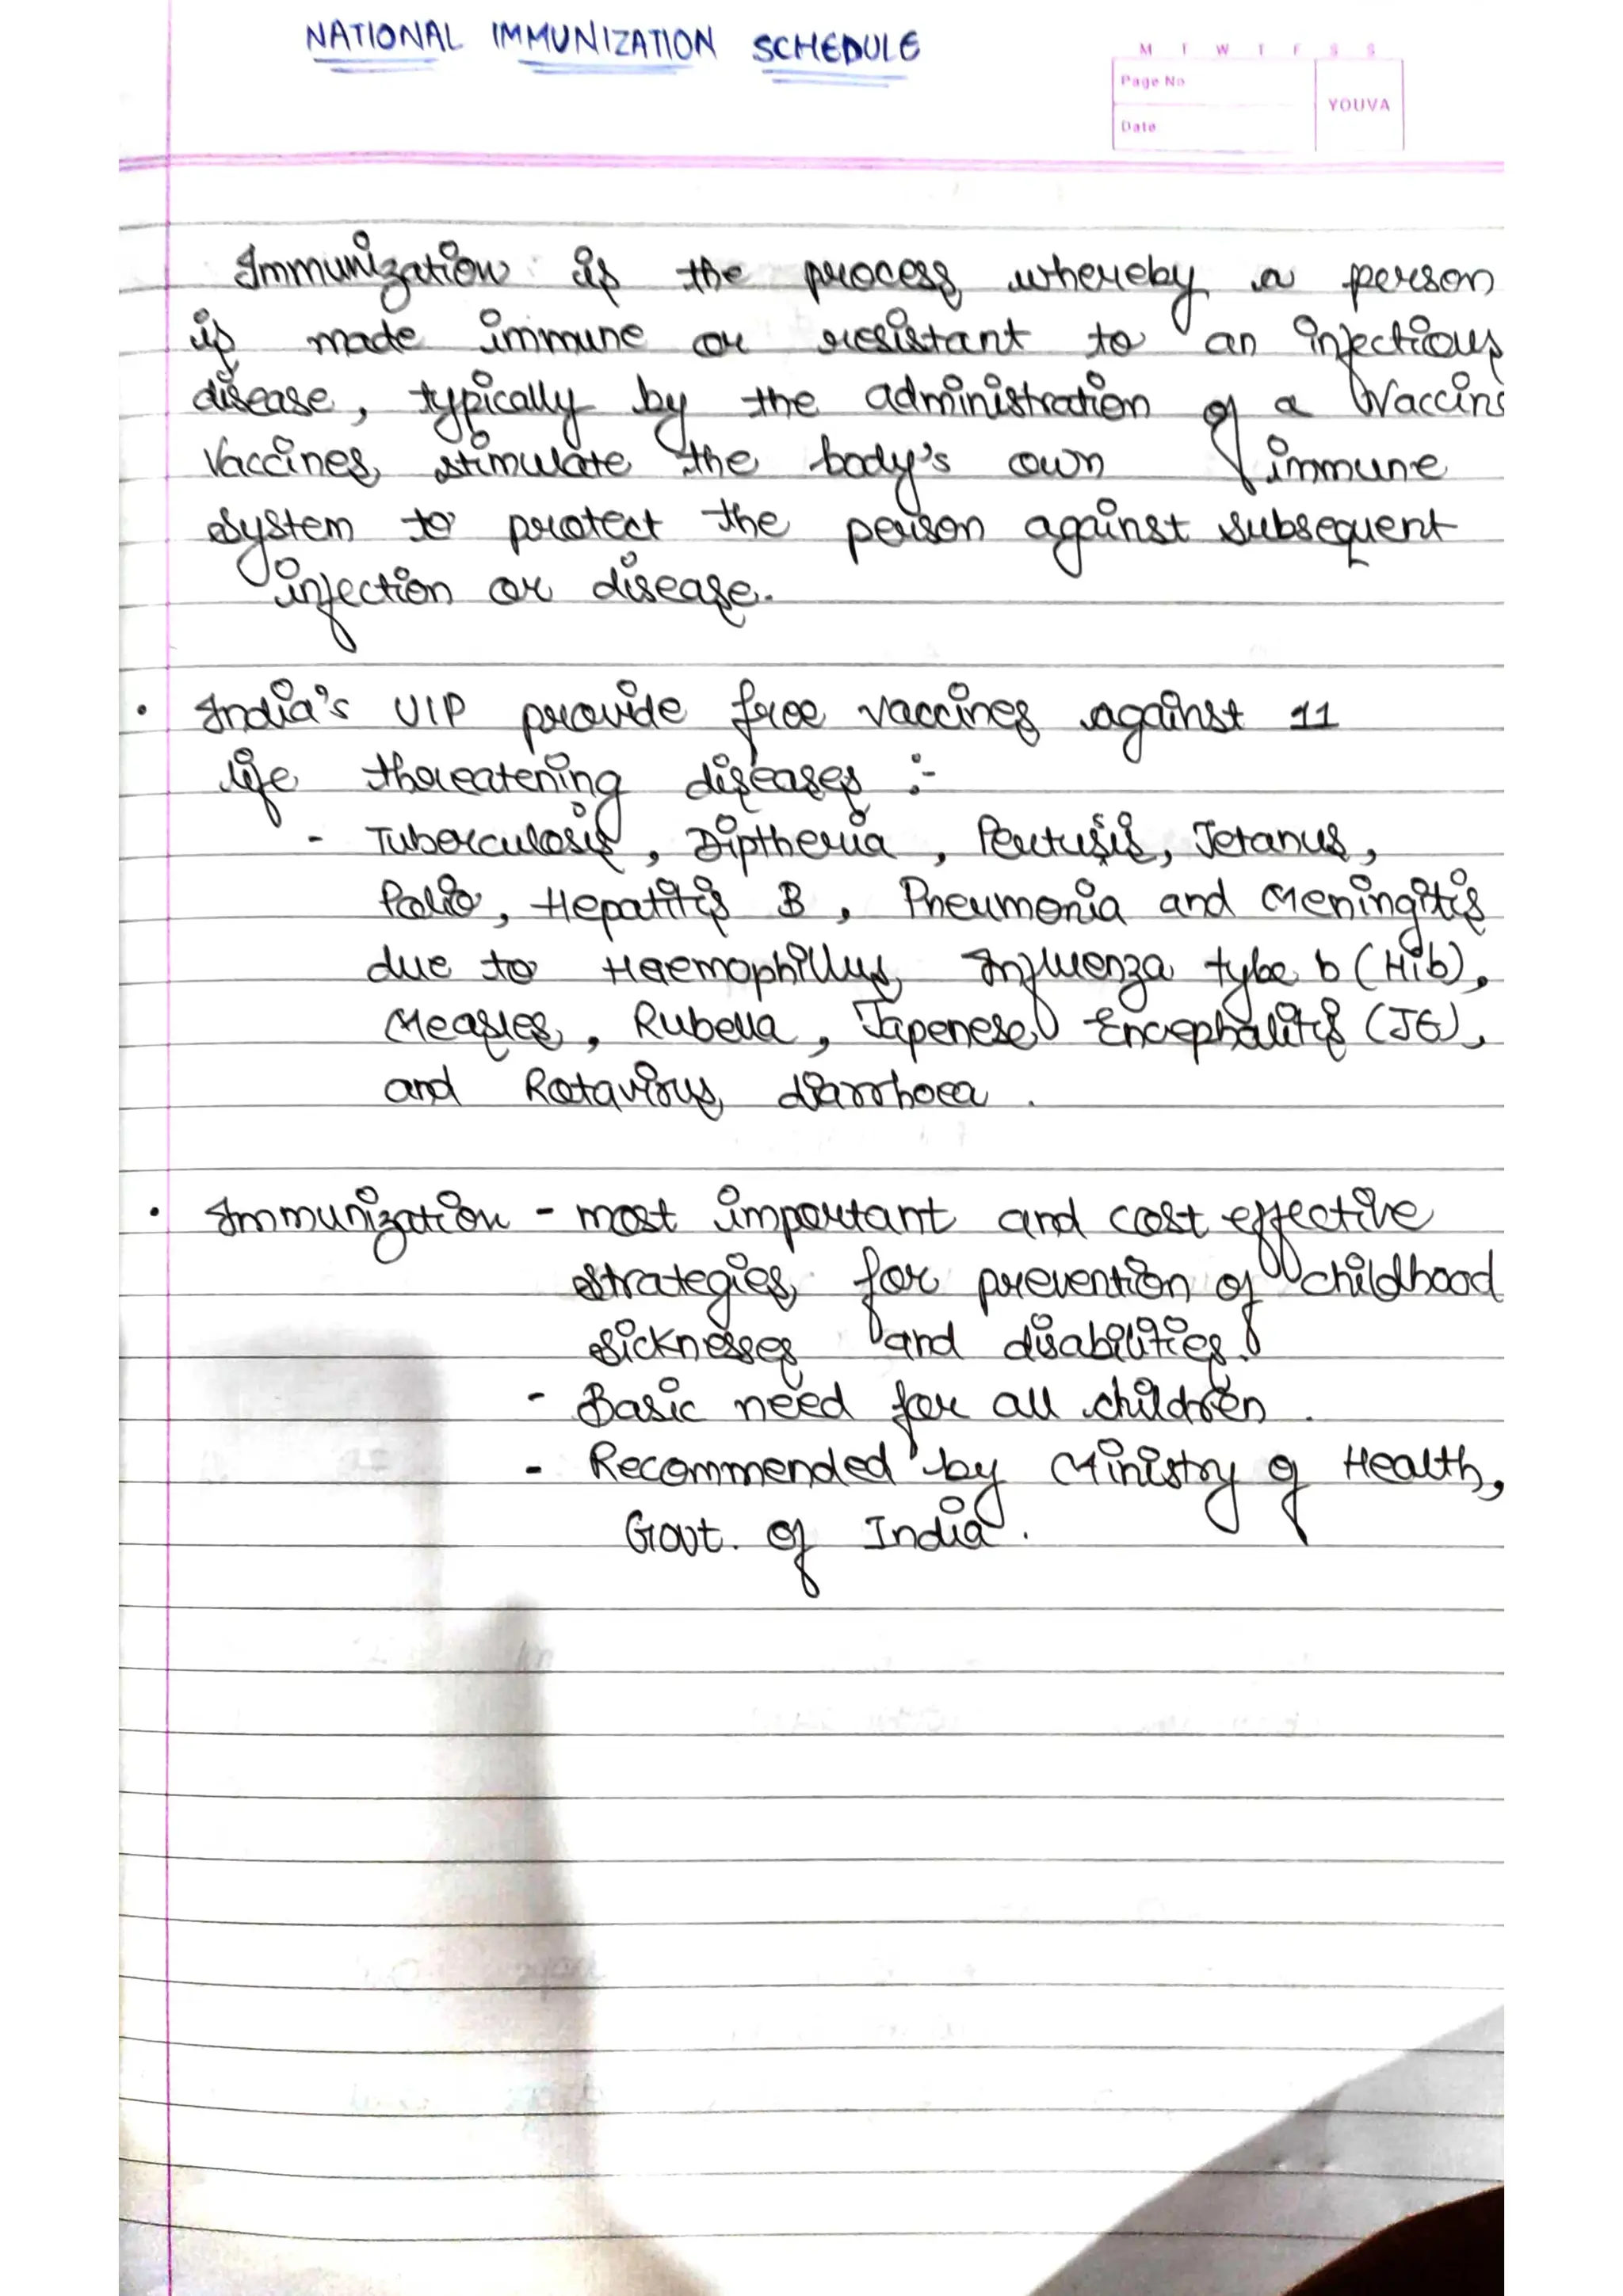 NATIONAL IMMUNIZATION SCHEDULE
M T W T F S S
Page No
YOUVA
Date
Immunization is the process whereby a person
is made immune or resistant to an infectious
disease, typically by the administration of a Vaccine
Vaccines stimulate the body's own immune
system to protect the person against subsequent
infection or disease.
• India's UIP provide free vaccines against 11
life threatening diseases :-
- Tuberculosis, Diptheria, Pertusis, Tetanus,
Polio, Hepatitis B, Pneumonia and Meningitis
due to Haemophillus Influenza type b (Hib),
Measles, Rubella, Japenese Encephalitis (JE),
and Rotavirus diarrhoea.
• Immunization - most important and cost effective
strategies for prevention of childhood
sicknesses and disabilities.
- Basic need for all children.
- Recommended by Ministry of Health,
Govt. of India.